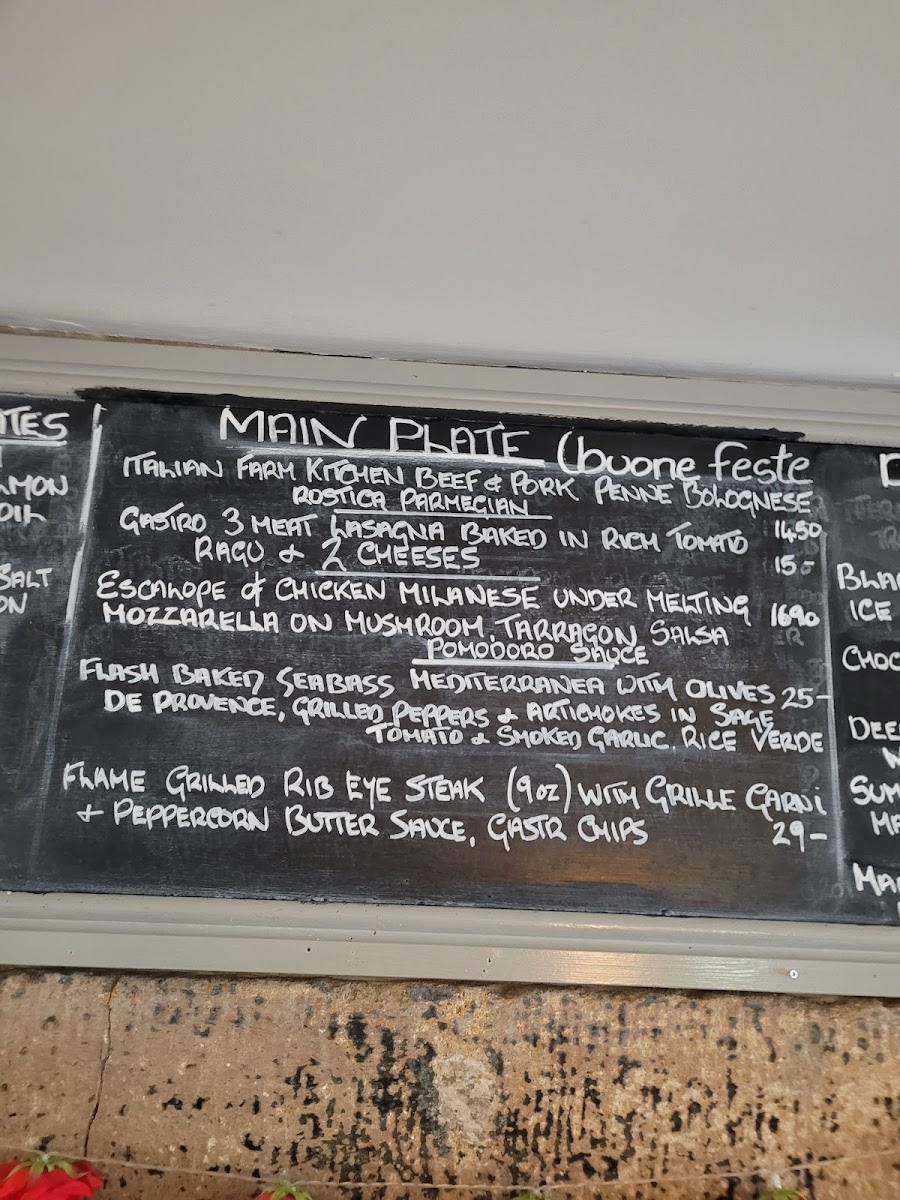 MAIN PLATE (buone feste
ITALIAN FARM KITCHEN BEEF & PORK PENNE BOLOGNESE
ROSTICA PARMEGIAN 1450
GASTRO 3 MEAT LASAGNA BAKED IN RICH TOMATO
RAGU & 2 CHEESES 15-
ESCALOPE of CHICKEN MILANESE UNDER MELTING 1690
MOZZARELLA ON MUSHROOM, TARRAGON SALSA
POMODORO SAUCE
FLASH BAKED SEABASS MEDITERRANEA WITH OLIVES 25-
DE PROVENCE, GRILLED PEPPERS & ARTICHOKES IN SAGE
TOMATO & SMOKED GARLIC, RICE VERDE
FLAME GRILLED RIB EYE STEAK (9oz) WITH GRILLE GARNI
+ PEPPERCORN BUTTER SAUCE, GASTR CHIPS 29-
ATES
LMON
OIL
SALT
ON
D
BLA
ICE
CHOC
DEE
SUM
MA
MA